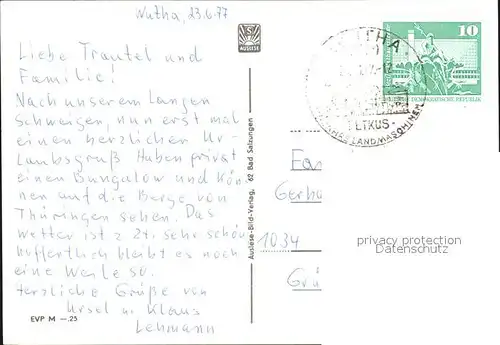 Wutha, 23.6.77
Liebe Trautel und
Familie!
Nach unserem langen
Schweigen, nun erst mal
einen herzlichen Ur-
laubsgruß. Haben privat
einen Bungalow und kön-
nen auf die Berge von
Thüringen sehen. Das
Wetter ist z. Zt. sehr schön
hoffentlich bleibt es noch
eine Weile so.
Herzliche Grüße von
Ursel u. Klaus
Lehmann
EVP M —.25
AUSLESE
Auslese-Bild-Verlag, 62 Bad Salzungen
WUTHA
10
DEMOKRATISCHE REPUBLIK
PETKUS
LANDMASCHINEN
Fa
Gerha
1034
Grü
privacy protection
Datenschutz